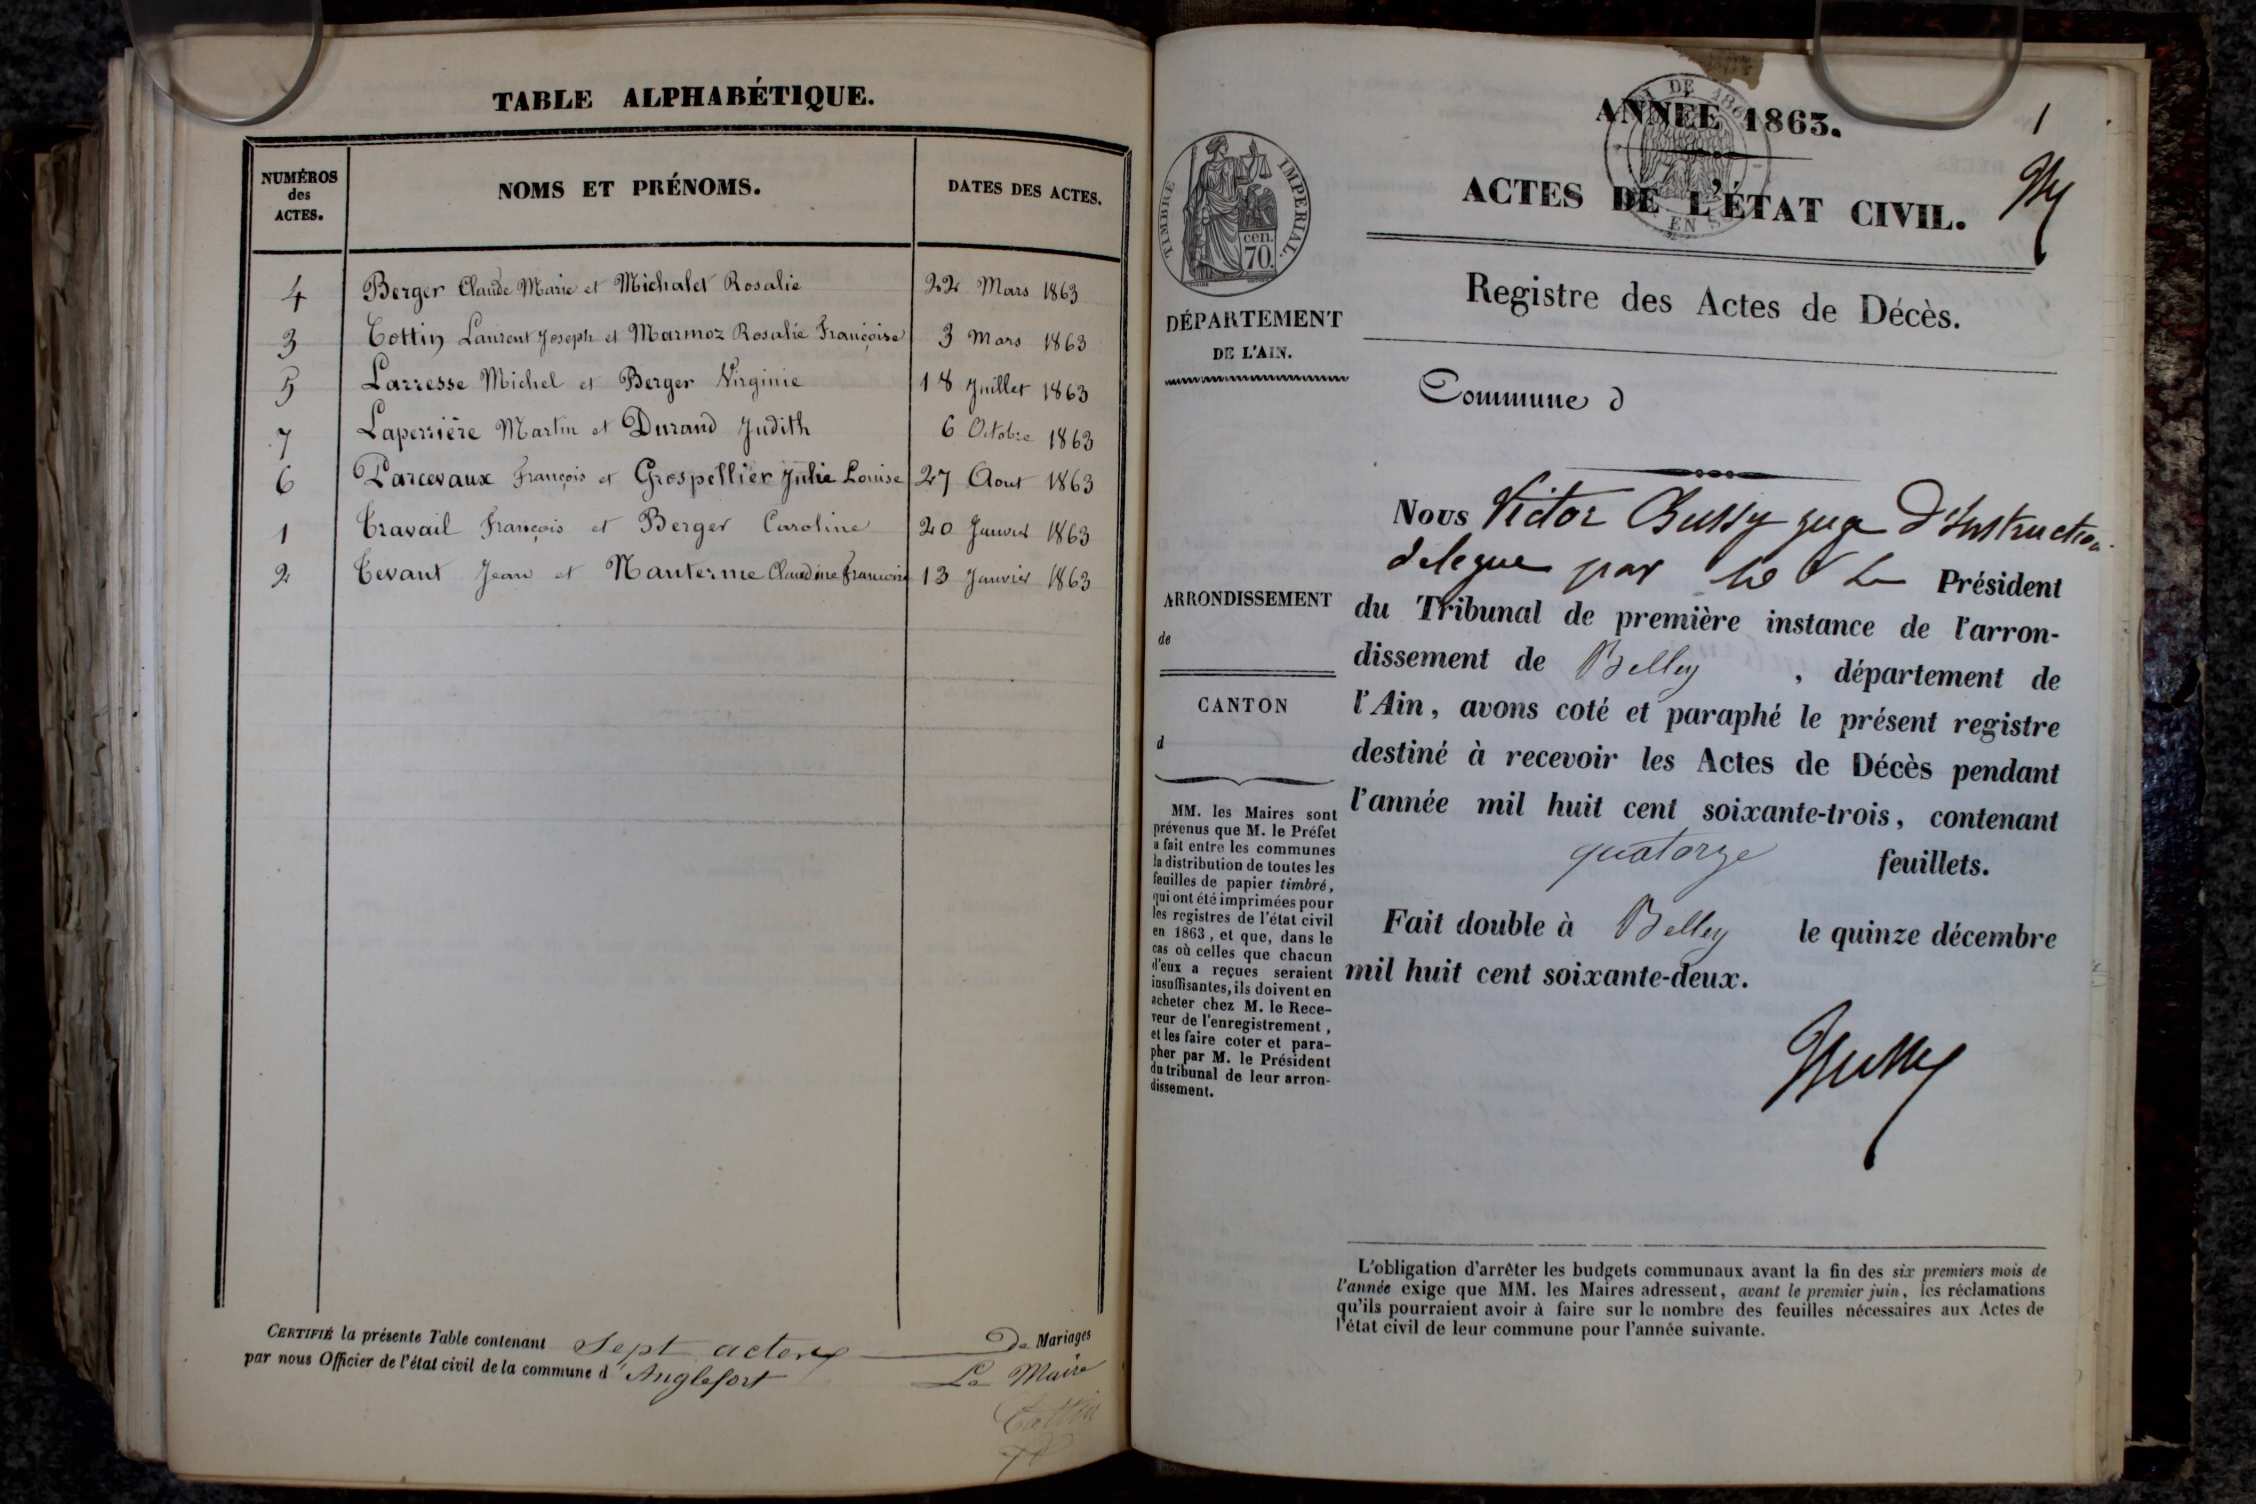 TABLE ALPHABÉTIQUE.
NUMÉROS
des
ACTES.
NOMS ET PRÉNOMS.
DATES DES ACTES.
4 Berger Claude Marie et Michalet Rosalie 22 Mars 1863
3 Cottin Laurent Joseph et Marmoz Rosalie Françoise 3 Mars 1863
5 Larresse Michel et Berger Virginie 18 Juillet 1863
7 Laperrière Martin et Durand Judith 6 Octobre 1863
6 Parcevaux François et Grospellier Julie Louise 27 Aout 1863
1 Travail François et Berger Caroline 20 Janvier 1863
2 Tevant Jean et Nanterme Claudine Françoise 13 Janvier 1863
CERTIFIÉ la présente Table contenant Sept actes De Mariages
par nous Officier de l'état civil de la commune d'Anglefort Le Maire
TIMBRE IMPERIAL.
cen.
70.
DÉPARTEMENT
DE L'AIN.
ARRONDISSEMENT
de
CANTON
d
MM. les Maires sont
prévenus que M. le Préfet
a fait entre les communes
la distribution de toutes les
feuilles de papier timbré,
qui ont été imprimées pour
les registres de l'état civil
en 1863, et que, dans le
cas où celles que chacun
d'eux a reçues seraient
insuffisantes, ils doivent en
acheter chez M. le Rece-
veur de l'enregistrement,
et les faire coter et para-
pher par M. le Président
du tribunal de leur arron-
dissement.
1
ANNÉE 1863.
ACTES DE L'ÉTAT CIVIL.
Registre des Actes de Décès.
Commune d
Nous Victor Bussy juge d'Instruction
delegue par Président
du Tribunal de première instance de l'arron-
dissement de Belley, département de
l'Ain, avons coté et paraphé le présent registre
destiné à recevoir les Actes de Décès pendant
l'année mil huit cent soixante-trois, contenant
quatorze feuillets.
Fait double à Belley le quinze décembre
mil huit cent soixante-deux.
Bussy
L'obligation d'arrêter les budgets communaux avant la fin des six premiers mois de
l'année exige que MM. les Maires adressent, avant le premier juin, les réclamations
qu'ils pourraient avoir à faire sur le nombre des feuilles nécessaires aux Actes de
l'état civil de leur commune pour l'année suivante.